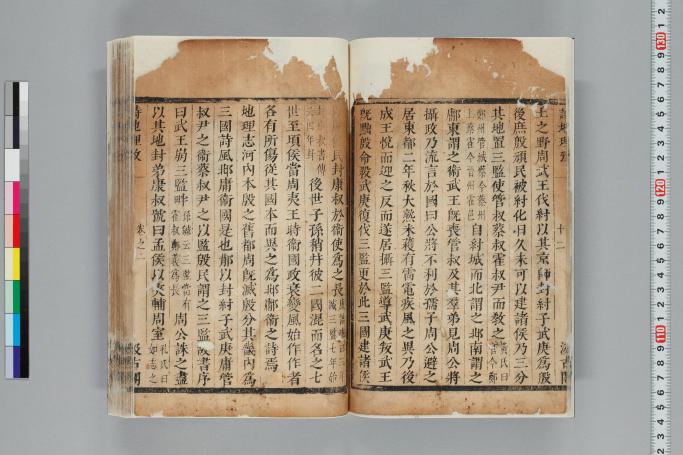 詩地理攷 十二 汲古閣
土之野周武王伐紂以其京師封紂子武庚爲殷
後庶殷頑民被紂化日久未可以建諸侯乃三分
其地置三監使管叔蔡叔霍叔尹而敎之黃氏曰管今鄭
州管城蔡今蔡州上蔡霍今晉州霍邑自紂城而北謂之邶南謂之
鄘東謂之衞武王旣喪管叔及其羣弟見周公將
攝政乃流言於國曰公將不利於孺子周公避之
居東都二年秋大熟未穫有雷電疾風之異乃後
成王悅而迎之反而遂居攝三監導武庚叛武王
旣黜殷命殺武庚復伐三監更於此三國建諸侯
民封康叔於衞使爲之長
後世子孫稍并彼二國混而名之七
世至頃侯當周夷王時衞國政衰變風始作作者
各有所傷從其國本而異之爲邶鄘衞之詩焉
地理志河内本殷之舊都周旣滅殷分其畿内爲
三國詩風邶庸衞國是也邶以封紂子武庚庸管
叔尹之衞蔡叔尹之以監殷民謂之三監故書序
曰武王崩三監畔孫毓云三監當有霍叔鄭義爲長周公誅之盡
以其地封弟康叔號曰孟侯以夾輔周室孔氏曰如志之
詩地理攷 卷之二 汲古閣
130
120
110